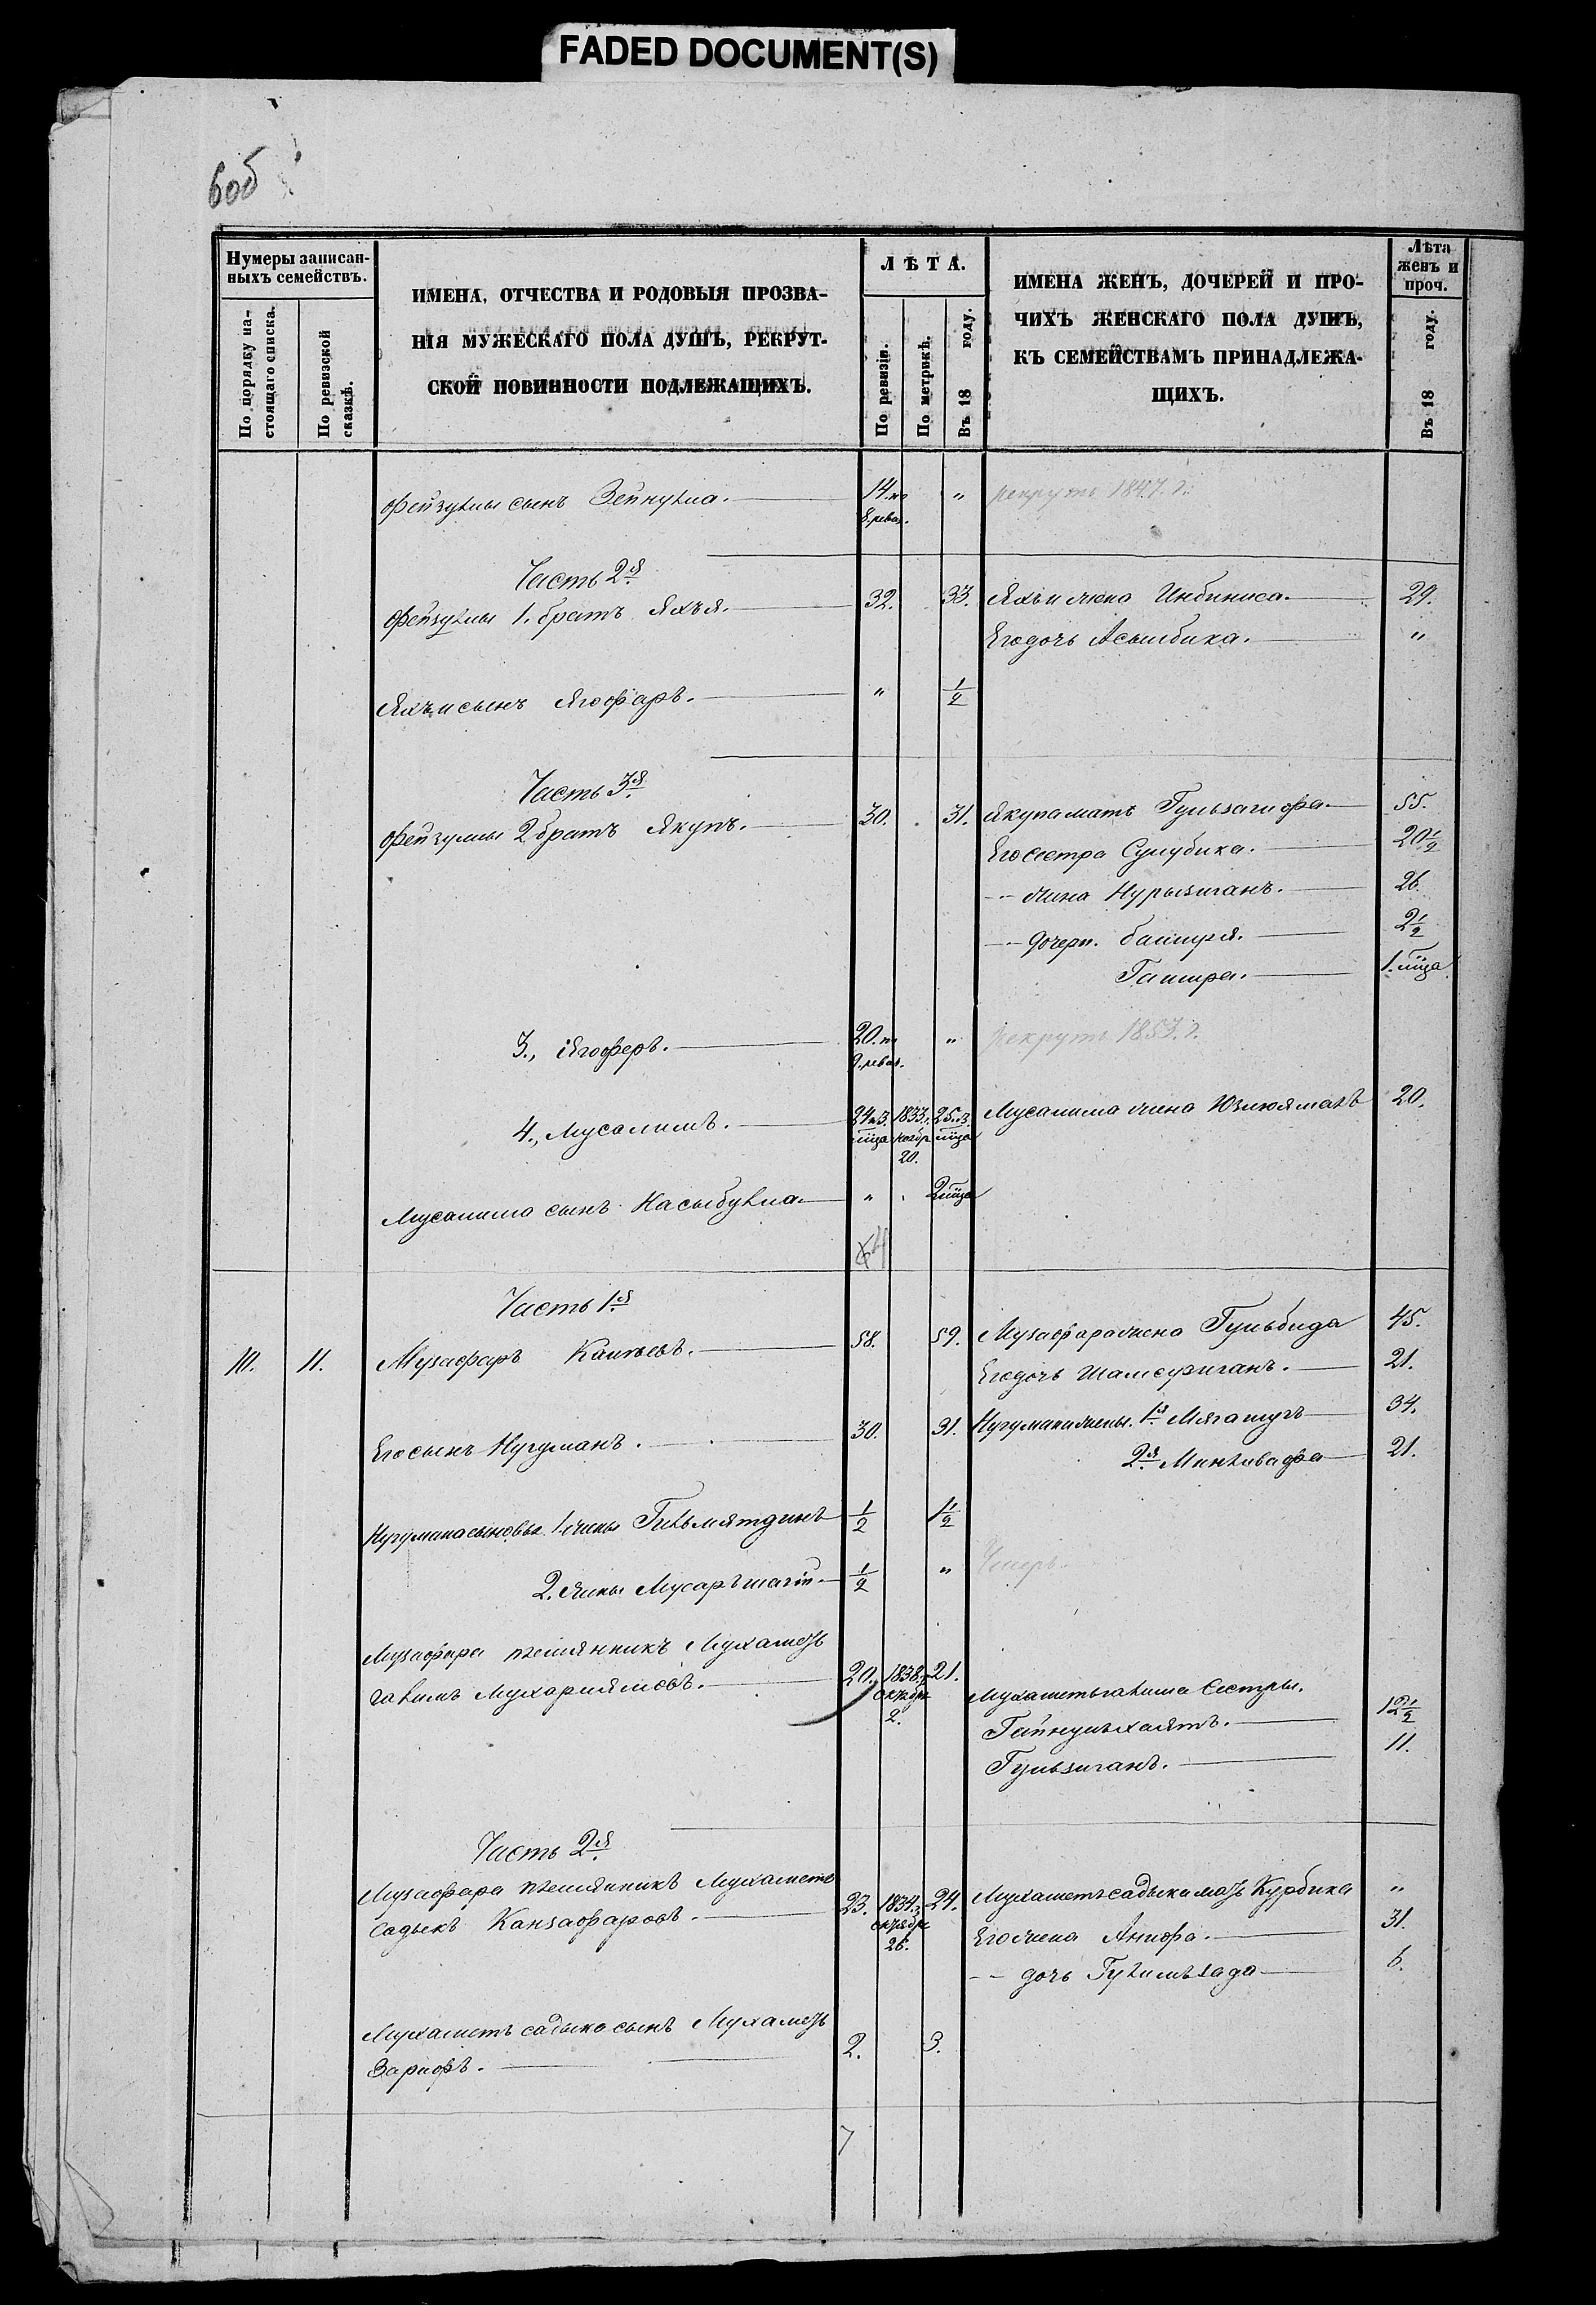 FADED DOCUMENT(S)
6об
Нумеры записан-
ныхъ семействъ.
По порядку на-
стоящаго списка.
По ревизской
сказкѣ.
ИМЕНА, ОТЧЕСТВА И РОДОВЫЯ ПРОЗВА-
НІЯ МУЖЕСКАГО ПОЛА ДУШЪ, РЕКРУТ-
СКОЙ ПОВИННОСТИ ПОДЛЕЖАЩИХЪ.
ЛѢТА.
По ревизіи.
По метрикѣ.
Въ 18 году.
ИМЕНА ЖЕНЪ, ДОЧЕРЕЙ И ПРО-
ЧИХЪ ЖЕНСКАГО ПОЛА ДУШЪ,
КЪ СЕМЕЙСТВАМЪ ПРИНАДЛЕЖА-
ЩИХЪ.
Лѣта
женъ и
проч.
Въ 18 году.
Фейзуллы сынъ Зейнулла. 14. по " рекрутъ 1847. г.
8. реви.
Часть 2я
Фейзуллы 1. братъ Яхъя. 32. 33. Яхъи жена Инбиниса. 29.
Его дочь Асылбика. "
Яхъи сынъ Ягофаръ. " 1/2
Часть 3я
Фейзуллы 2 братъ Якупъ. 30. 31. Якупа мать Гульзагифа 55.
Его сестра Сулубика. 20 1/2
-- жена Нурызиганъ. 26.
-- дочери. Башира. 2 1/2
Гашира. 1. мца
3., Ягоферъ. 20. по " рекрутъ 1853. г.
9. реви.
4., Мусалимъ. 24 и 3. 1833. 25. и 3. Мусалима жена Юзлюямалъ 20.
мца ноябр мца
20.
Мусалима сынъ Насыбулла " 2 мца
Часть 1я
10. 11. Музафаръ 58. 59. Музафара жена Гульбида 45.
Его дочь Шамсузиганъ. 21.
Его сынъ Нугуманъ. 30. 31. Нугумана жены. 1я 34.
2я 21.
Нугумана сыновья 1. жены 1/2 1 1/2
2. жены 1/2 " Умеръ.
Музафара племянникъ Мухаметь
галимъ 20. 1838. 21. Мухаметьгалима сестры.
октября
2.
12 1/2
Гульзиганъ. 11.
Часть 2я
Музафара племянникъ Мухаметь
садыкъ Канзафаровъ. 23. 1834. 24. Мухаметьсадыка мать Курбика "
октября
26.
Его жена Анифа. 31.
-- дочь 6.
Мухаметь садыка сынъ Мухаметь
Зарифъ. 2. 3.
7